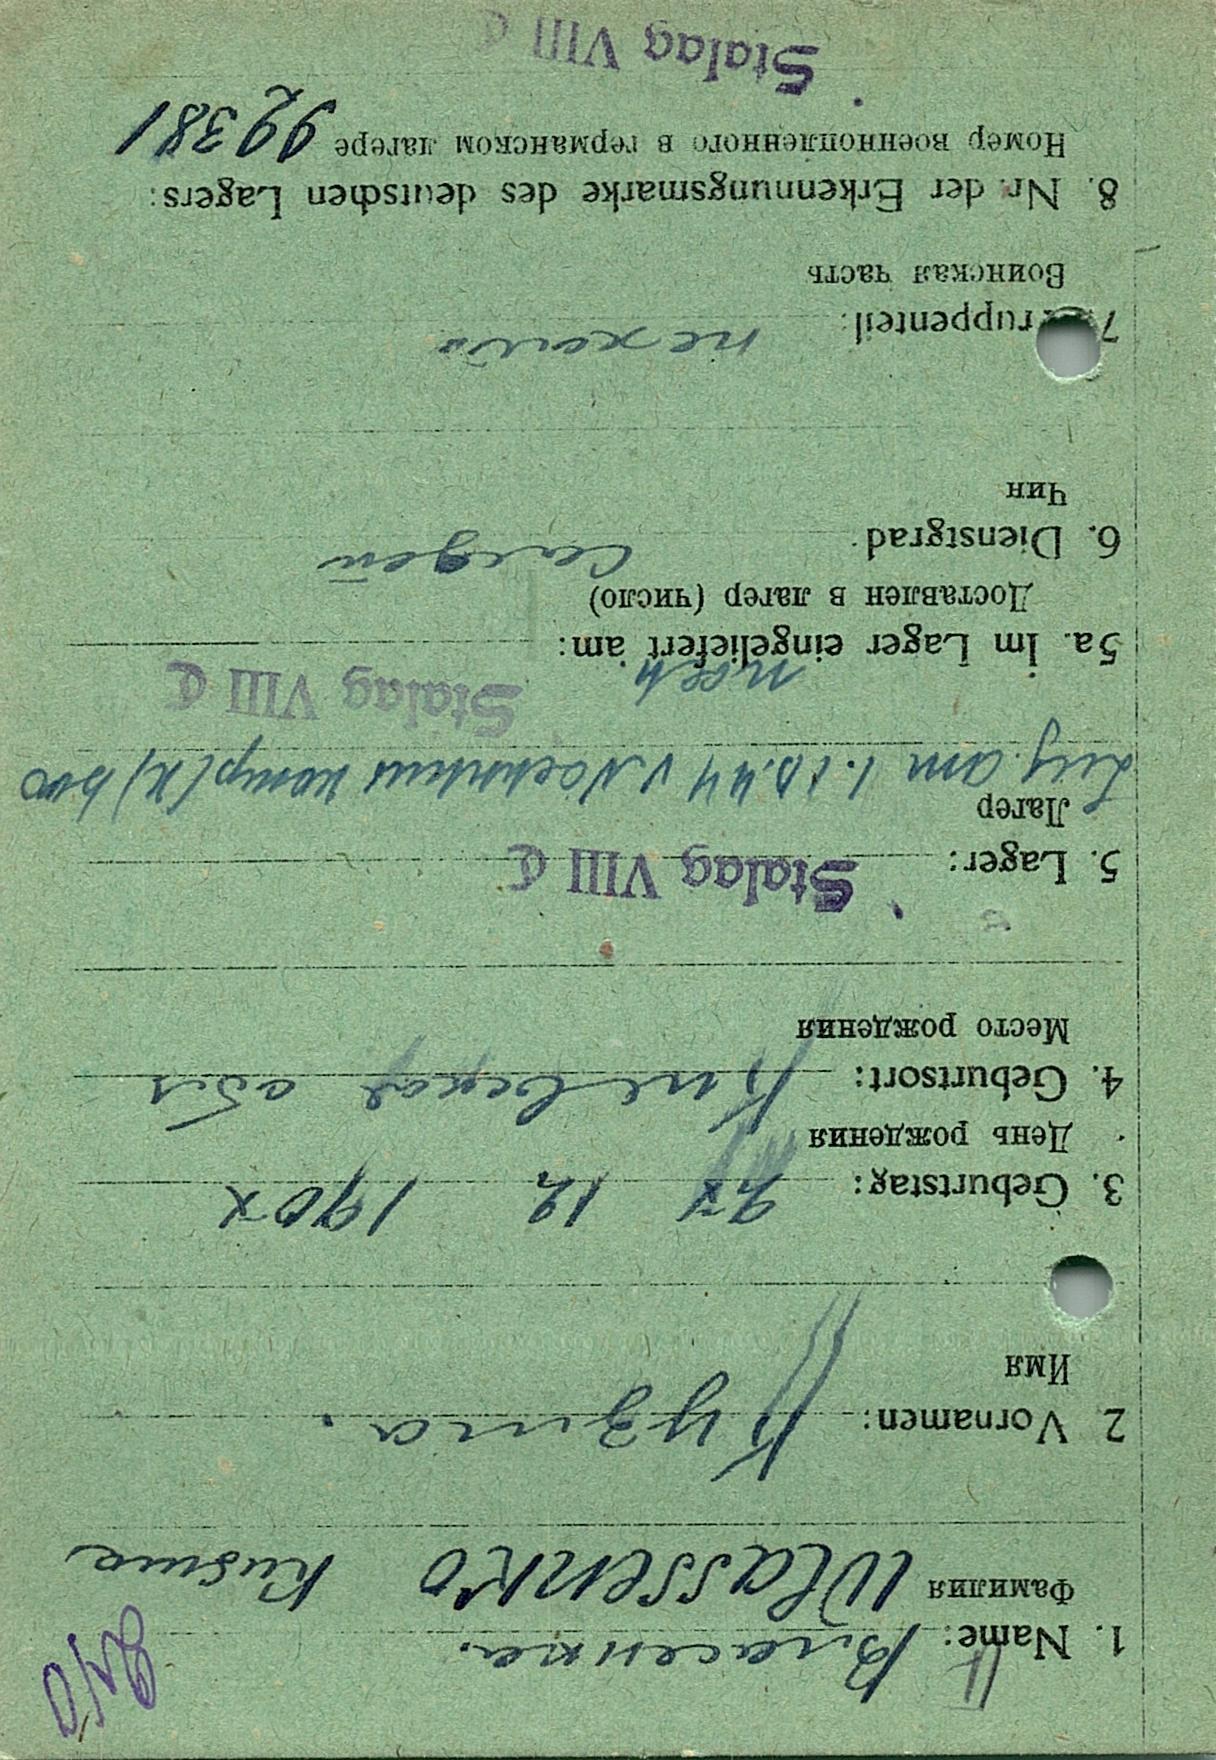 1. Name: Власенка.
Фамилия Wlassenko Kusma
2 Vornamen: Кузма.
Имя
3. Geburtstag: 12 190
День рождения
4. Geburtsort: Киевскоя обл
Место рождения
5. Lager: Stalag VIII C
Лагер
am 1.10.44 v.
Stalag VIII C
nach
5a. Im Lager eingeliefert am:
Доставлен в лагер (число)
6. Dienstgrad
Чин
7. Truppenteil: пехота
Воинская часть
8. Nr. der Erkennungsmarke des deutschen Lagers:
Номер военнопленного в германском лагере 99381
Stalag VIII C